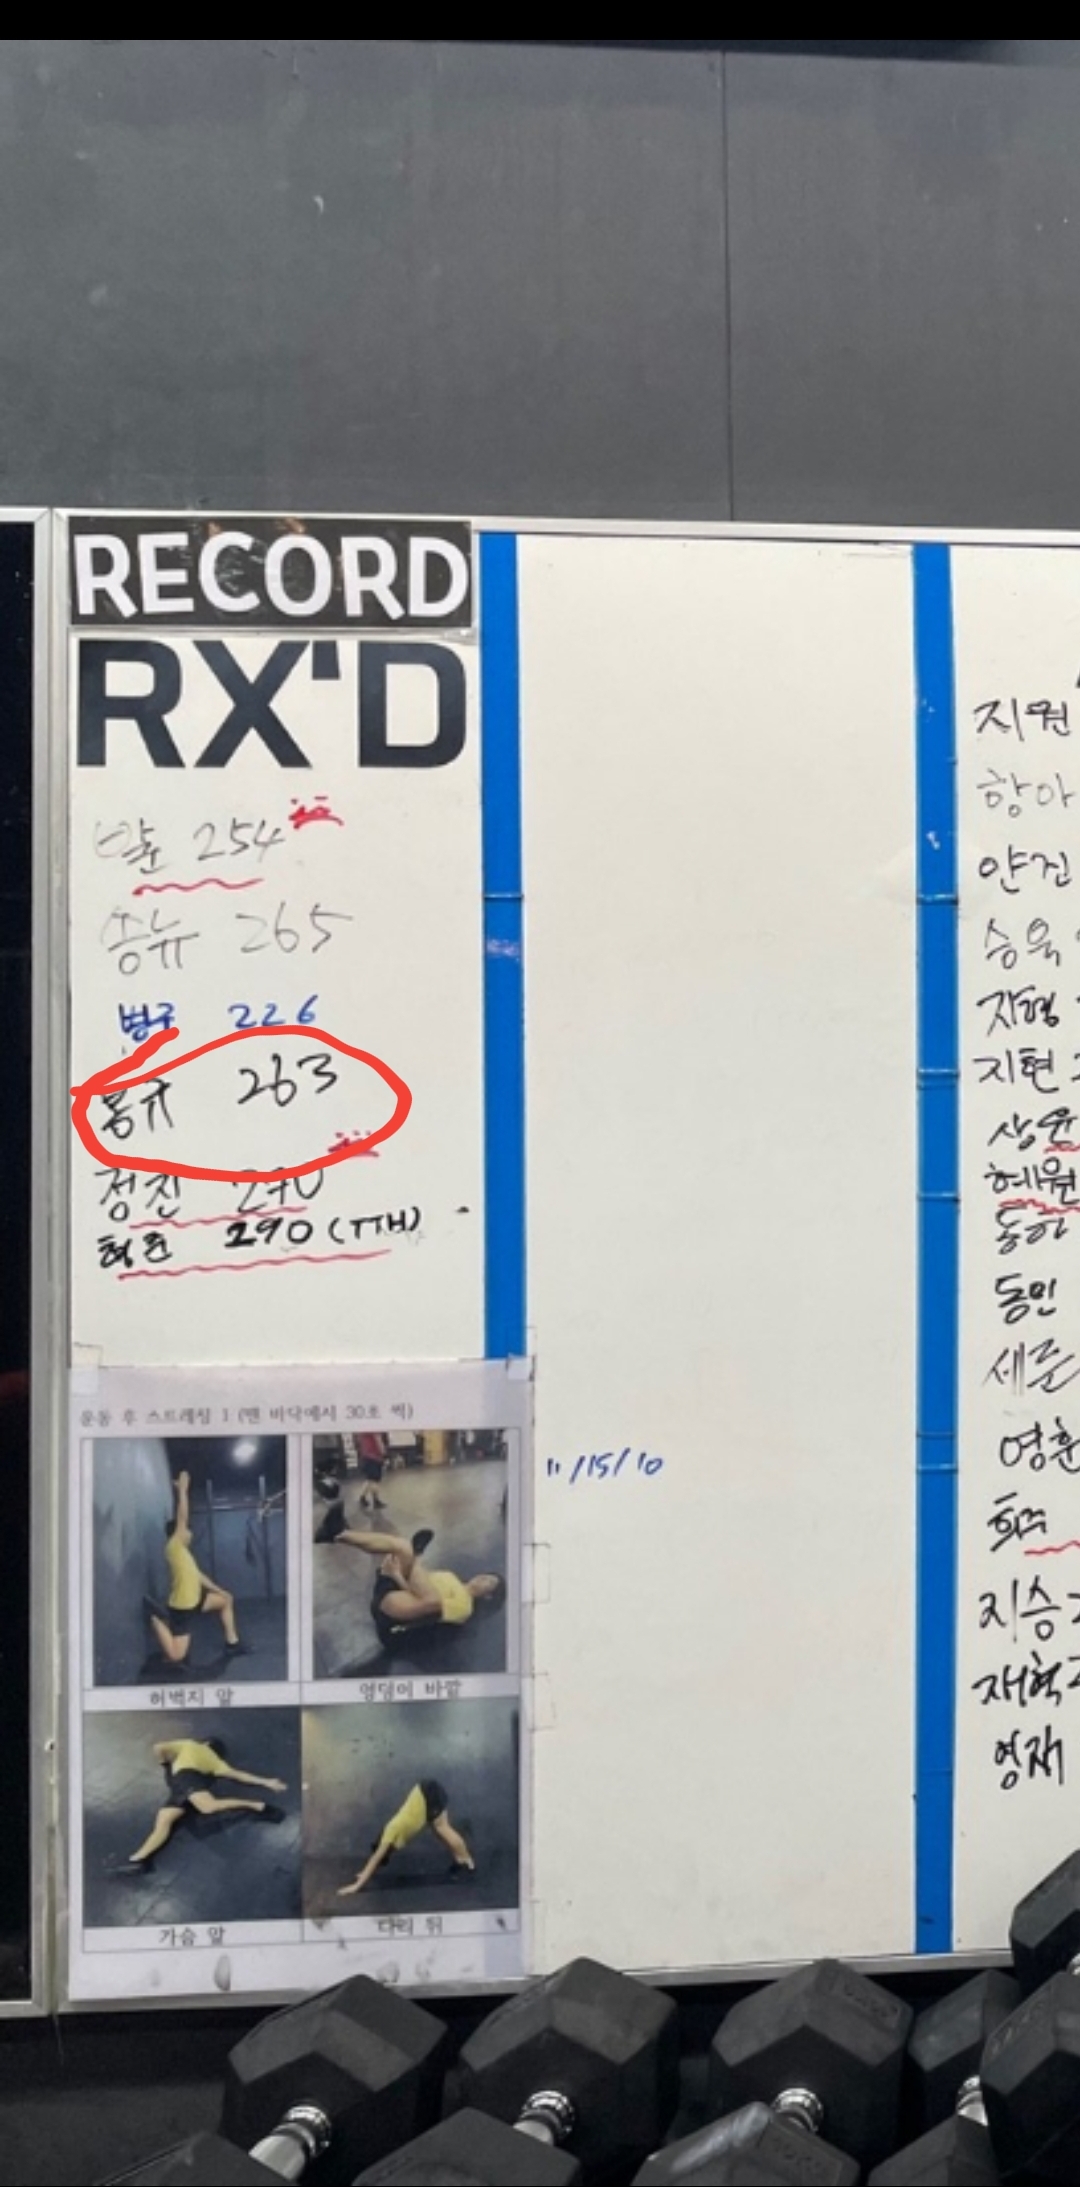 RECORD
RX'D
254
승뉴 265
병구 226
봉규 263
정진 270
형준 290 (TTH)
운동 후 스트레칭 1 (맨 바닥에서 30초 씩)
허벅지 앞
엉덩이 바깥
가슴 앞
다리 뒤
11/15/10
지원
항아
얀진
승욱
지형
지현
상윤
혜원
동하
동민
세준
영훈
희주
지승
재혁
영재